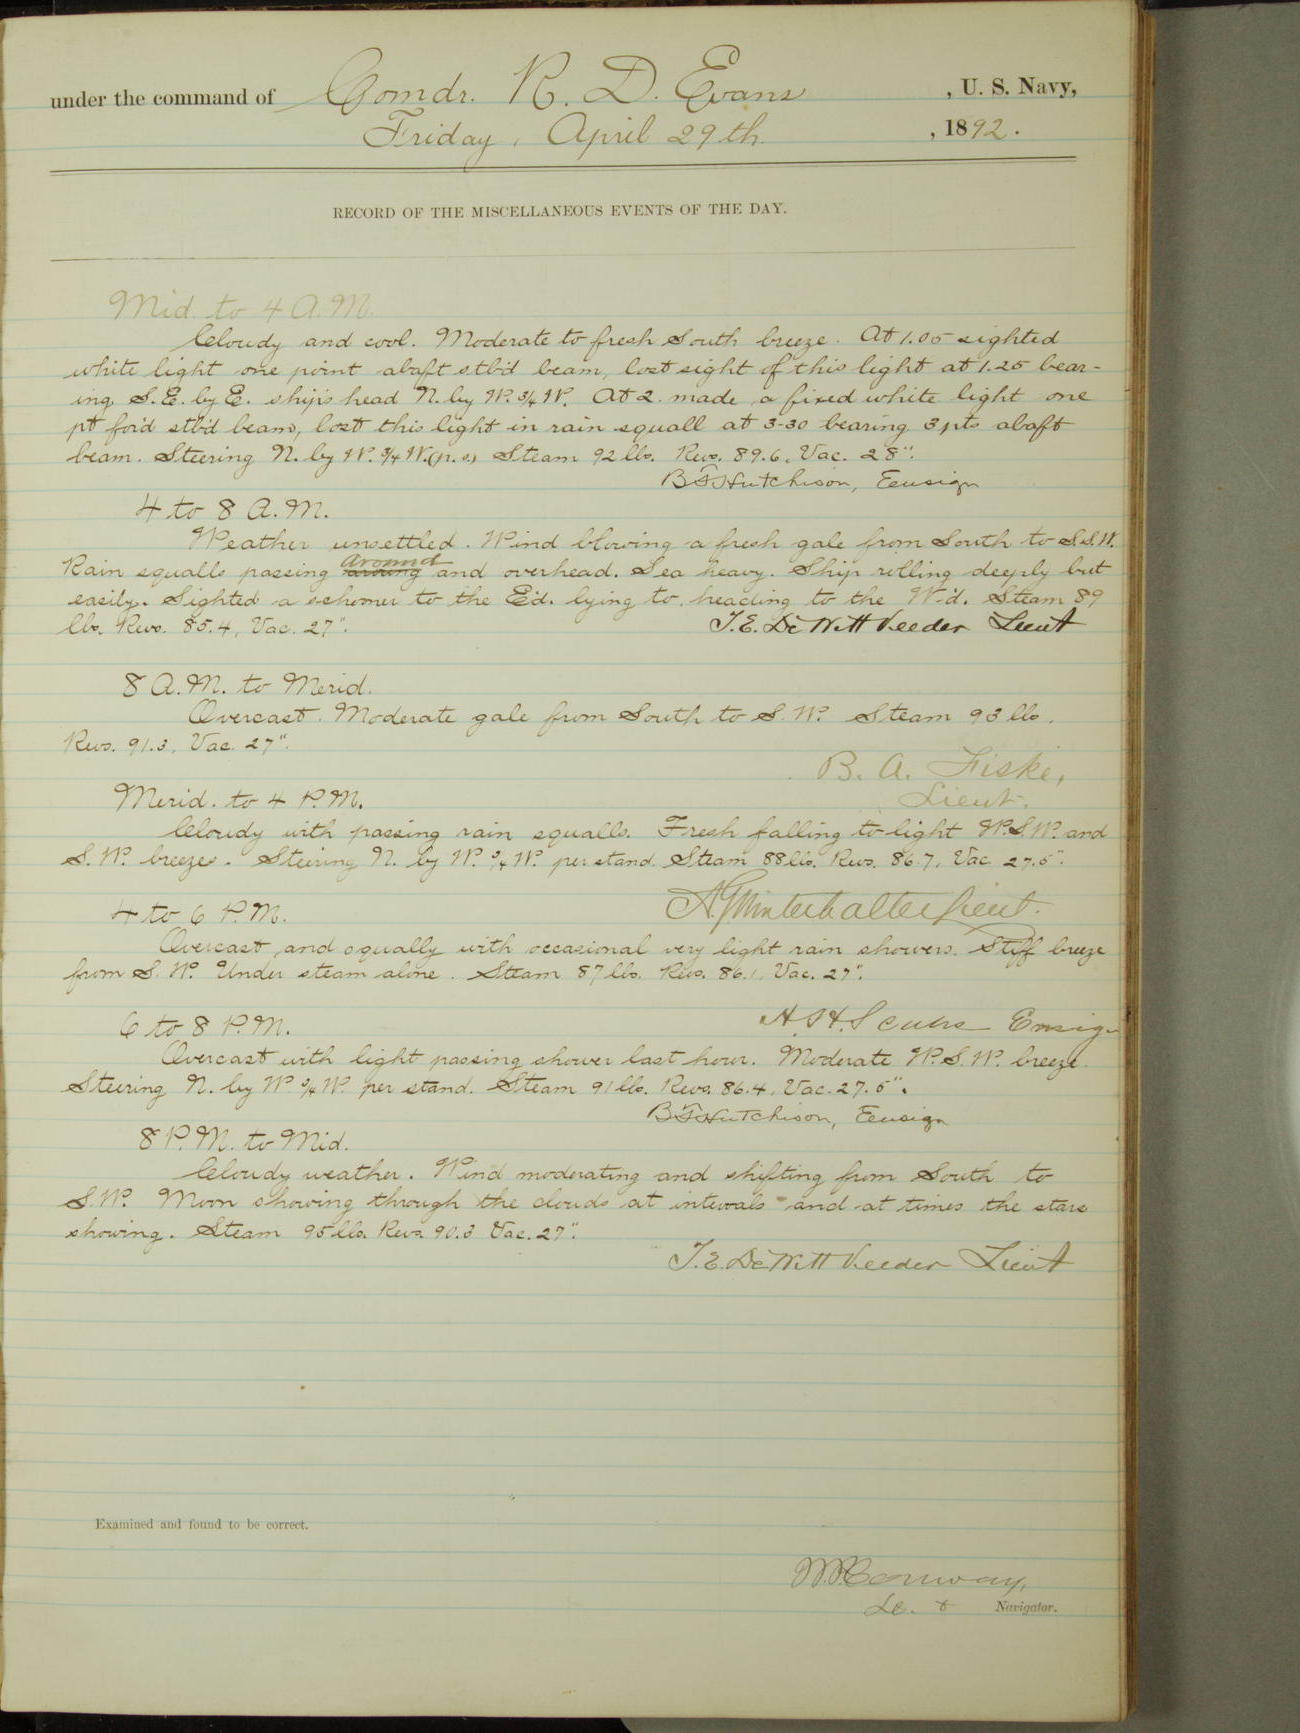 under the command of Comdr. R. D. Evans, U. S. Navy,
Friday, April 29th, 1892.
RECORD OF THE MISCELLANEOUS EVENTS OF THE DAY.
Mid. to 4 A.M.
Cloudy and cool. Moderate to fresh South breeze. At 1.05 sighted
white light one point abaft stb'd beam, lost sight of this light at 1.25 bear-
ing S.E. by E. ship's head N. by W. 3/4 W. At 2 made a fixed white light one
pt for'd stb'd beam, lost this light in rain squall at 3-30 bearing 3 pts abaft
beam. Steering N. by W. 3/4 W. (p.s.) Steam 92 lbs. Revs. 89.6, Vac. 28".
B F Hutchison, Ensign
4 to 8 A.M.
Weather unsettled. Wind blowing a fresh gale from South to S.S.W.
around
Rain squalls passing and overhead. Sea heavy. Ship rolling deeply but
easily. Sighted a schoner to the E'd. lying to, heading to the W'd. Steam 89
lbs. Revs. 85.4, Vac. 27".
T.E. DeWitt Veeder Lieut
8 A.M. to Merid.
Overcast. Moderate gale from South to S.W. Steam 93 lbs.
Revs. 91.3, Vac. 27".
B. A. Fiske,
Lieut.
Merid. to 4 P.M.
Cloudy with passing rain squalls. Fresh falling to light W.S.W. and
S.W. breezes. Steering N. by W. 3/4 W. per stand. Steam 88 lbs. Revs. 86.7, Vac 27.5".
A G Winterhalter Lieut.
4 to 6 P.M.
Overcast and squally with occasional very light rain showers. Stiff breeze
from S.W. Under steam alone. Steam 87 lbs. Revs. 86.1, Vac. 27".
Ensign
6 to 8 P.M.
Overcast with light passing shower last hour. Moderate W.S.W. breeze.
Steering N. by W. 3/4 W. per stand. Steam 91 lbs. Revs. 86.4, Vac. 27.5".
B F Hutchison, Ensign
8 P.M. to Mid.
Cloudy weather. Wind moderating and shifting from South to
S.W. Moon showing through the clouds at intervals and at times the stars
showing. Steam 95 lbs. Revs. 90.3 Vac. 27".
T.E. DeWitt Veeder Lieut
Examined and found to be correct.
Conway,
Navigator.